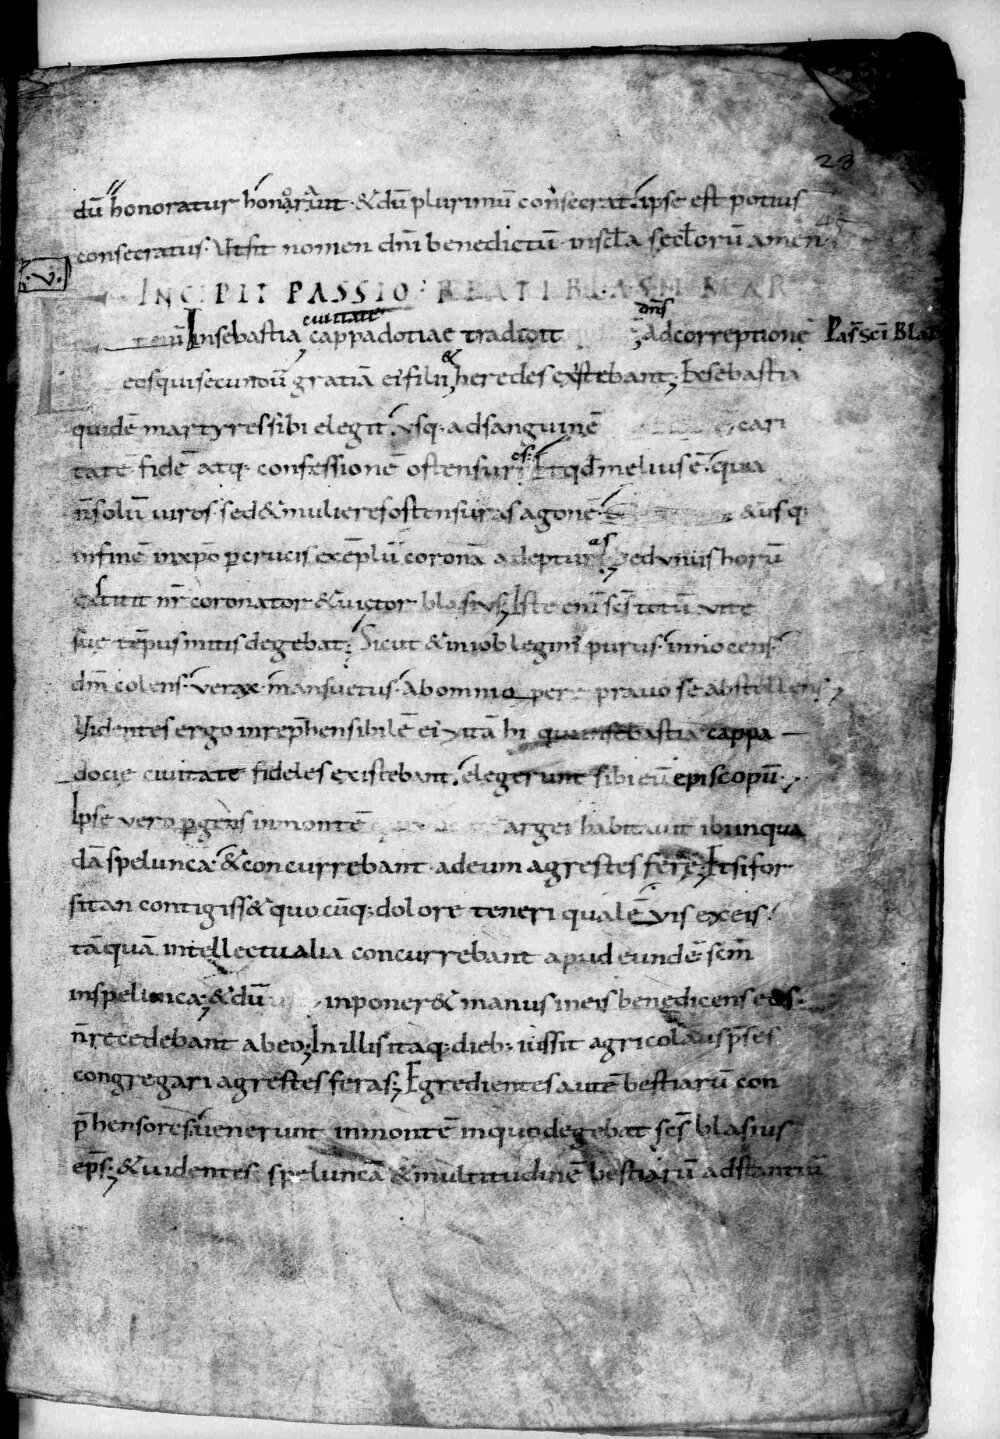 23
dū honoratur honorarit · & dū plurimū consecrat · ipse est potius
45
consecratus · Ut sit nomen dn̄i benedictū in scl̄a scl̄orū amen ·
.v.
INCIPIT PASSIO BEATI BLASII MAR
civitate dn̄s
In sebastia cappadotiae tradidit ad correptionē Pas̄ sc̄i Bla
eos qui secundū gratiā ei filii & heredes existebant; Ex sebastia
quidē martyres sibi elegit · usq· ad sanguinē cari
tatē fidē atq· confessionē ostensuros; Et qd̄ melius ē · quia
n̄ solū viros · sed & mulieres ostensuras agonē · & usq·
in finē in xp̄o p crucis exēplū coronā adepturas; Sed unus horū
extitit nr̄ coronator & victor blasius; Iste eni sc̄s totū vite
sue tēpus mitis degebat; Sicut & in iob legim̄ purus · innocens ·
dm̄ colens · verax · mansuetus · Ab omni opere pravo se abstollens;
Videntes ergo inrep̄hensibilē ei vitā hi qui in sebastia cappa
docie civitate fideles existebant · elegerunt sibi eū episcopū ·
Ipse vero pgens in montē argei habitavit ibi in qua
dā spelunca · & concurrebant ad eum agrestes fere; Et si for
sitan contigiss& quocūq· dolore teneri qualē vis ex eis ·
tāquā intellectualia concurrebant apud eundē sc̄m
in spelunca; & dū inponer& manus in eis benedicens eos ·
n̄ recedebant ab eo; In illis itaq· dieb· iussit agricolaus p̄ses
congregari agrestes feras; Egredientes autē bestiarū con
p̄hensores · venerunt in montē in quo degebat sc̄s blasius
ep̄s; & videntes speluncā & multitudinē bestiarū adstantiū